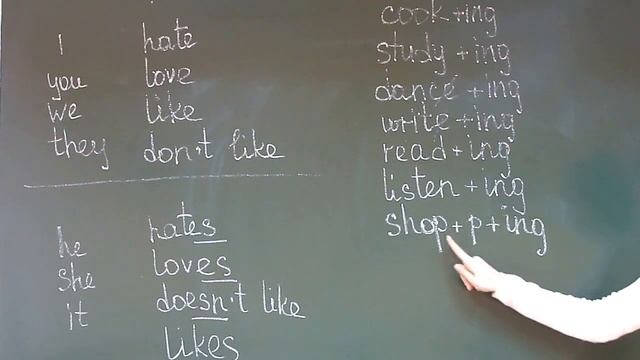 I hate
you love
we like
they don't like
he hates
she loves
it doesn't like
likes
cook+ing
study+ing
dance+ing
write+ing
read+ing
listen+ing
shop+p+ing